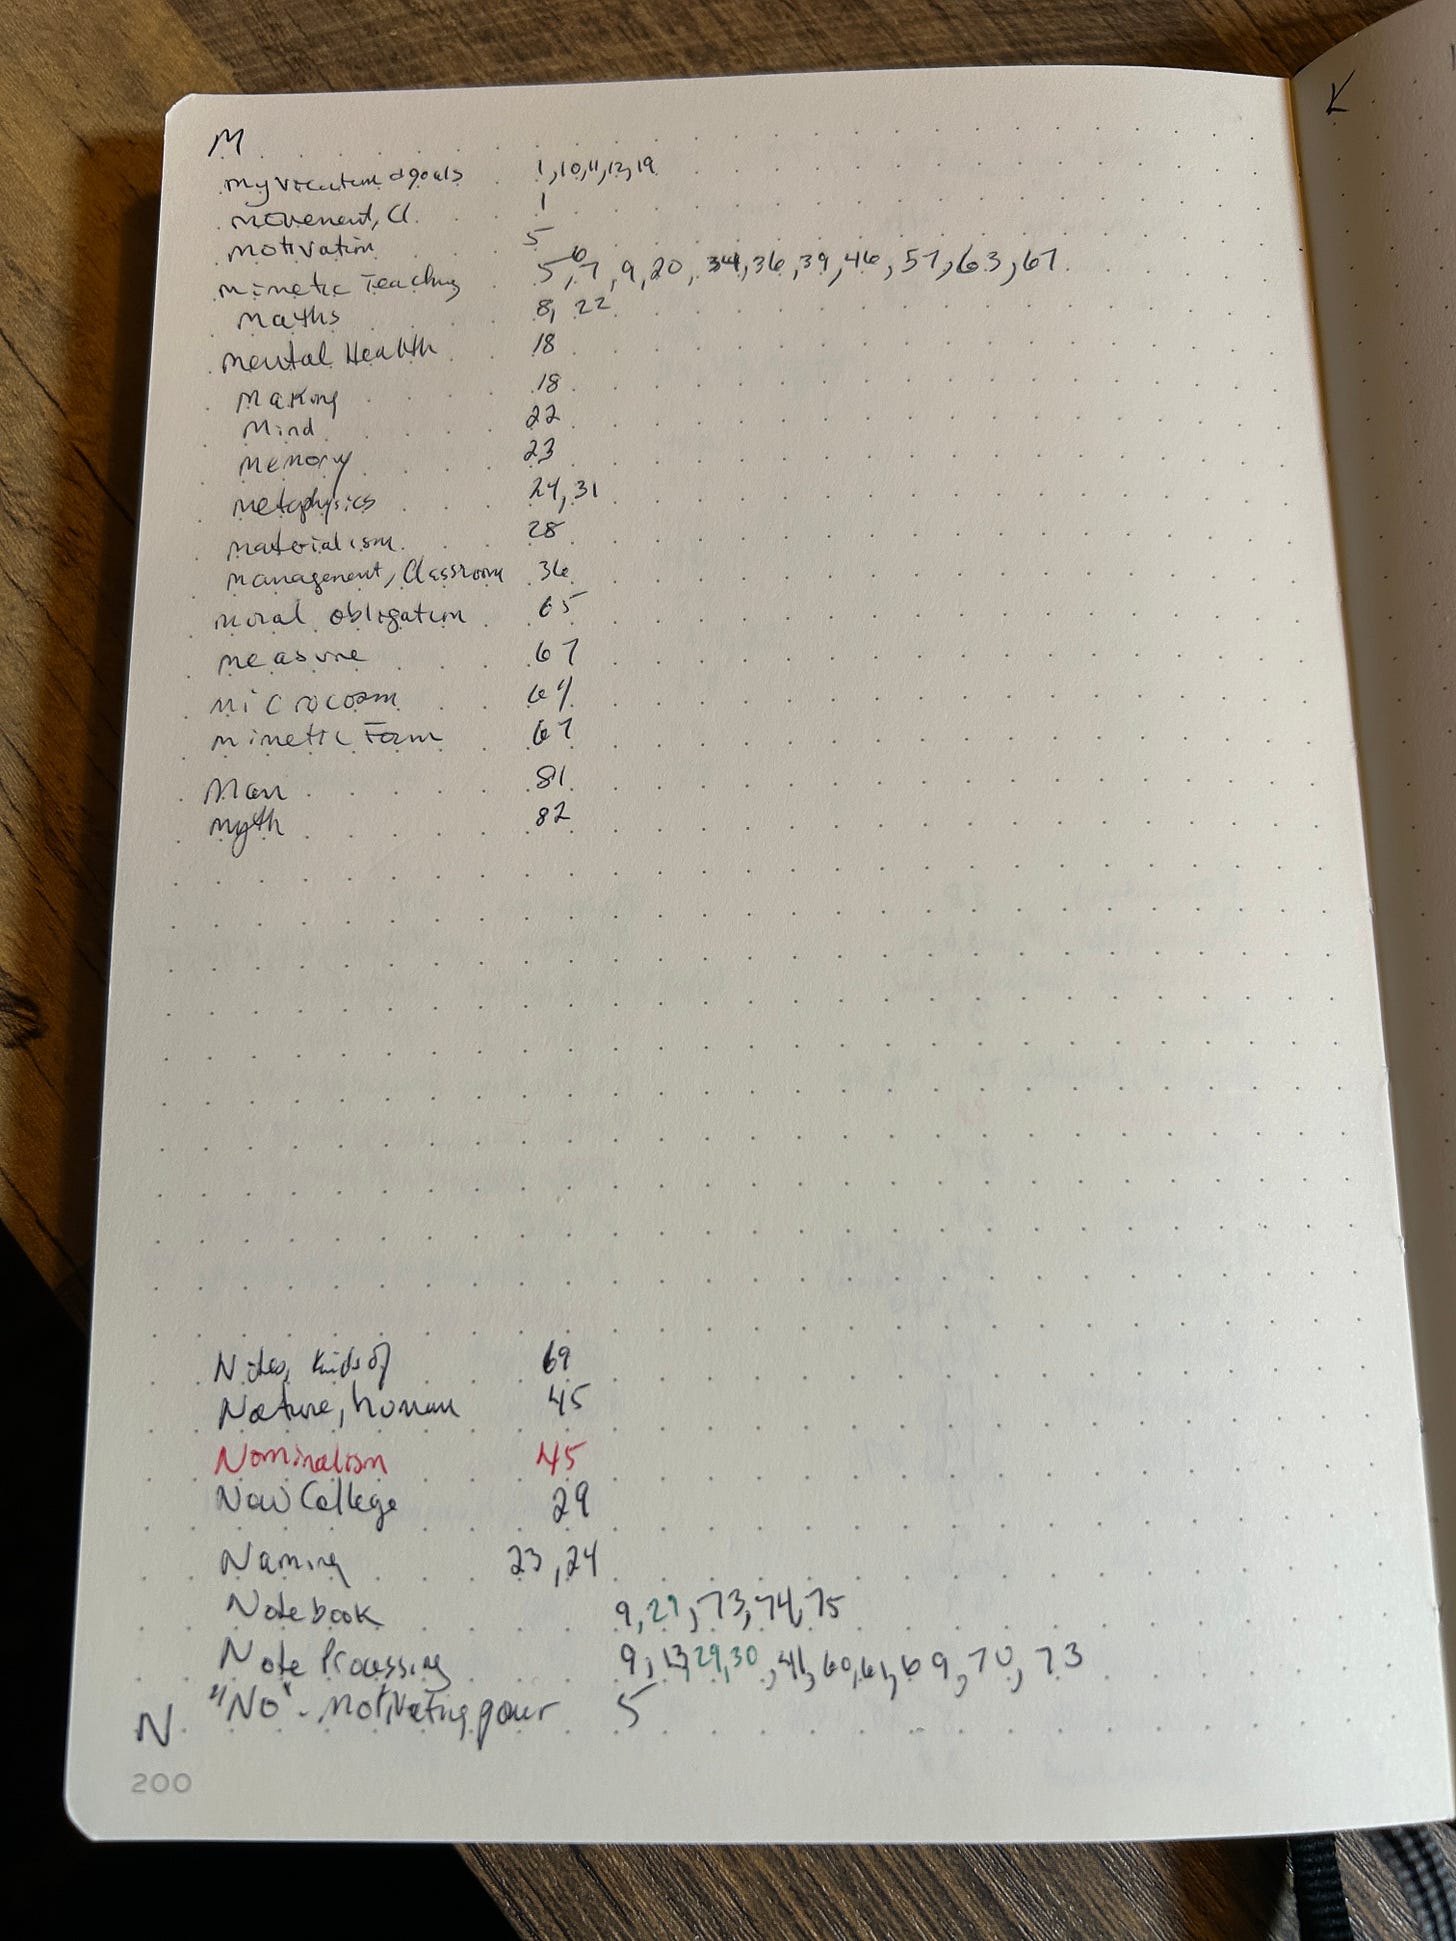 M
K
my vocation & goals 1, 10, 11, 12, 19
movement, Cl. 1
motivation 5
mimetic Teaching 5, 6, 7, 9, 20, 34, 36, 39, 46, 57, 63, 67
Maths 8, 22
mental Health 18
Making 18
Mind 22
memory 23
metaphysics 24, 31
materialism 28
management, Classroom 36
moral obligation 65
measure 67
microcosm 64
mimetic Form 67
Man 81
Myth 82
Notes, kinds of 69
Nature, human 45
Nominalism 45
New College 29
Naming 23, 24
Notebook 9, 29, 73, 74, 75
Note Processing 9, 13, 29, 30, 41, 60, 61, 69, 70, 73
"No" - motivating power 5
N
200